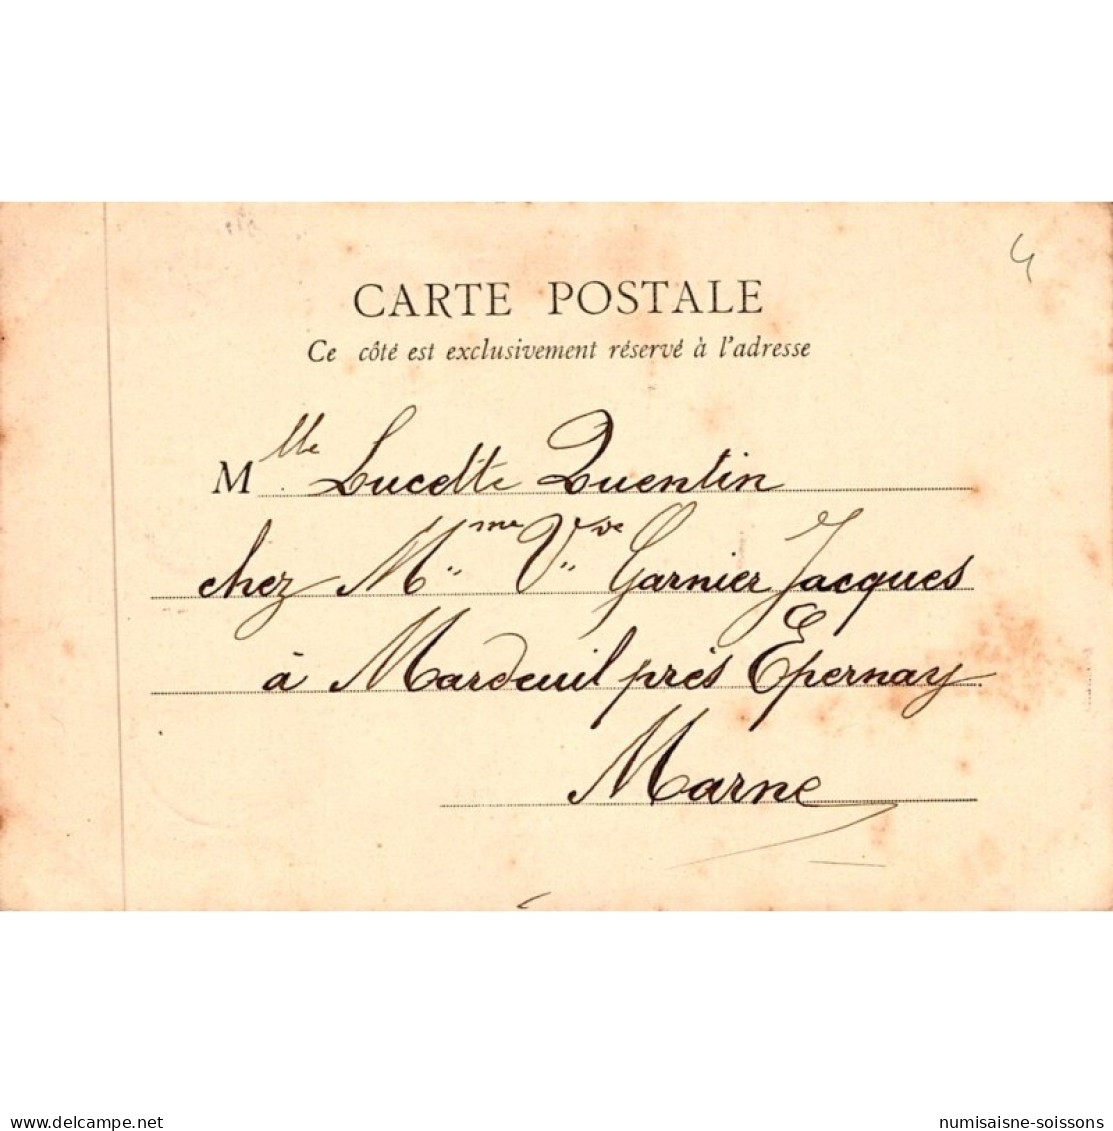 4
CARTE POSTALE
Ce côté est exclusivement réservé à l'adresse
Mlle Lucette Quentin
chez Mme Vve Garnier Jacques
à Mardeuil près Epernay
Marne
delcampe.net
numisaisne-soissons